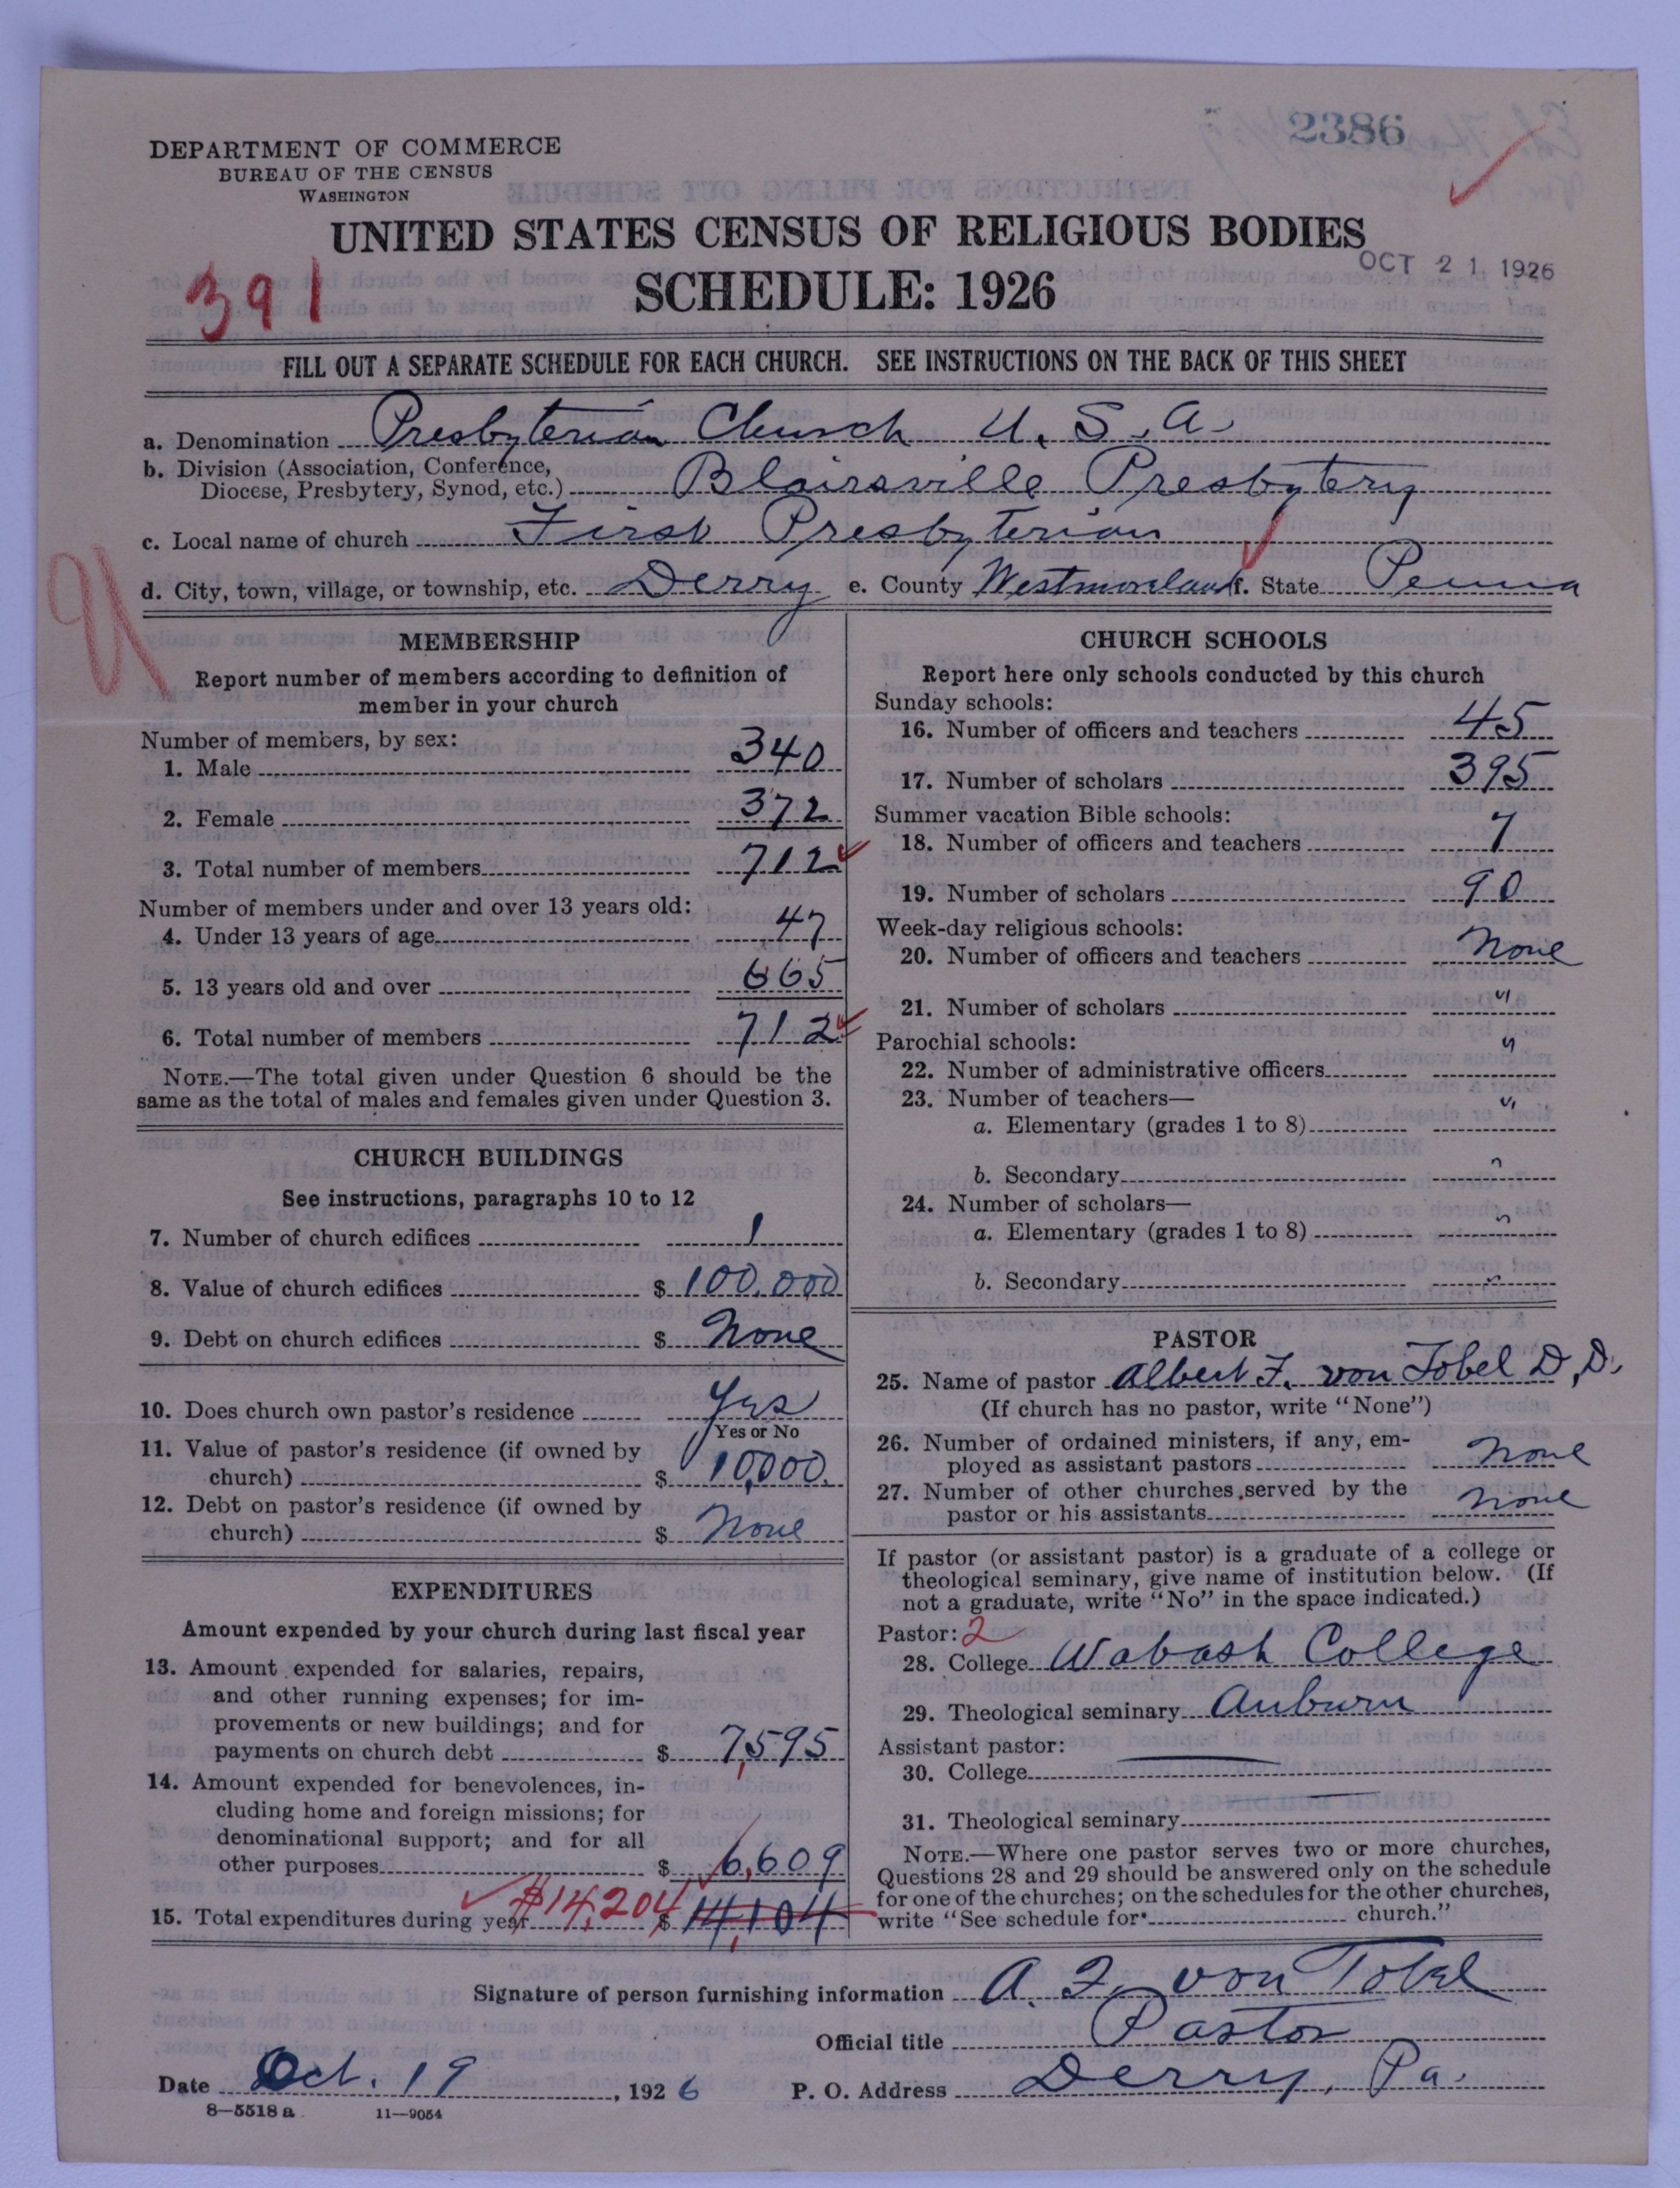 2386
DEPARTMENT OF COMMERCE
BUREAU OF THE CENSUS
WASHINGTON
UNITED STATES CENSUS OF RELIGIOUS BODIES
OCT 21 1926
391
SCHEDULE: 1926
FILL OUT A SEPARATE SCHEDULE FOR EACH CHURCH. SEE INSTRUCTIONS ON THE BACK OF THIS SHEET
a. Denomination Presbyterian Church U.S.A.
b. Division (Association, Conference,
Diocese, Presbytery, Synod, etc.) Blairsville Presbytery
c. Local name of church First Presbyterian
d. City, town, village, or township, etc. Derry e. County Westmoreland f. State Penna
MEMBERSHIP
Report number of members according to definition of
member in your church
Number of members, by sex:
1. Male 340
2. Female 372
3. Total number of members 712
Number of members under and over 13 years old:
4. Under 13 years of age 47
5. 13 years old and over 665
6. Total number of members 712
NOTE.—The total given under Question 6 should be the
same as the total of males and females given under Question 3.
CHURCH BUILDINGS
See instructions, paragraphs 10 to 12
7. Number of church edifices 1
8. Value of church edifices $ 100,000
9. Debt on church edifices $ None
10. Does church own pastor's residence Yes
Yes or No
11. Value of pastor's residence (if owned by
church) $ 10,000.
12. Debt on pastor's residence (if owned by
church) $ None
EXPENDITURES
Amount expended by your church during last fiscal year
13. Amount expended for salaries, repairs,
and other running expenses; for im-
provements or new buildings; and for
payments on church debt $ 7,595
14. Amount expended for benevolences, in-
cluding home and foreign missions; for
denominational support; and for all
other purposes $ 6,609
15. Total expenditures during year $14,204 $ 14,104
CHURCH SCHOOLS
Report here only schools conducted by this church
Sunday schools:
16. Number of officers and teachers 45
17. Number of scholars 395
Summer vacation Bible schools:
18. Number of officers and teachers 7
19. Number of scholars 90
Week-day religious schools:
20. Number of officers and teachers None
21. Number of scholars "
Parochial schools:
22. Number of administrative officers "
23. Number of teachers—
a. Elementary (grades 1 to 8) "
b. Secondary "
24. Number of scholars—
a. Elementary (grades 1 to 8) "
b. Secondary "
PASTOR
25. Name of pastor Albert F. von Tobel D.D.
(If church has no pastor, write "None")
26. Number of ordained ministers, if any, em-
ployed as assistant pastors None
27. Number of other churches served by the
pastor or his assistants None
If pastor (or assistant pastor) is a graduate of a college or
theological seminary, give name of institution below. (If
not a graduate, write "No" in the space indicated.)
Pastor: 2
28. College Wabash College
29. Theological seminary Auburn
Assistant pastor:
30. College
31. Theological seminary
NOTE.—Where one pastor serves two or more churches,
Questions 28 and 29 should be answered only on the schedule
for one of the churches; on the schedules for the other churches,
write "See schedule for church."
Signature of person furnishing information A. F. von Tobel
Official title Pastor
Date Oct. 19, 1926 P. O. Address Derry, Pa.
8—5518 a 11—9054